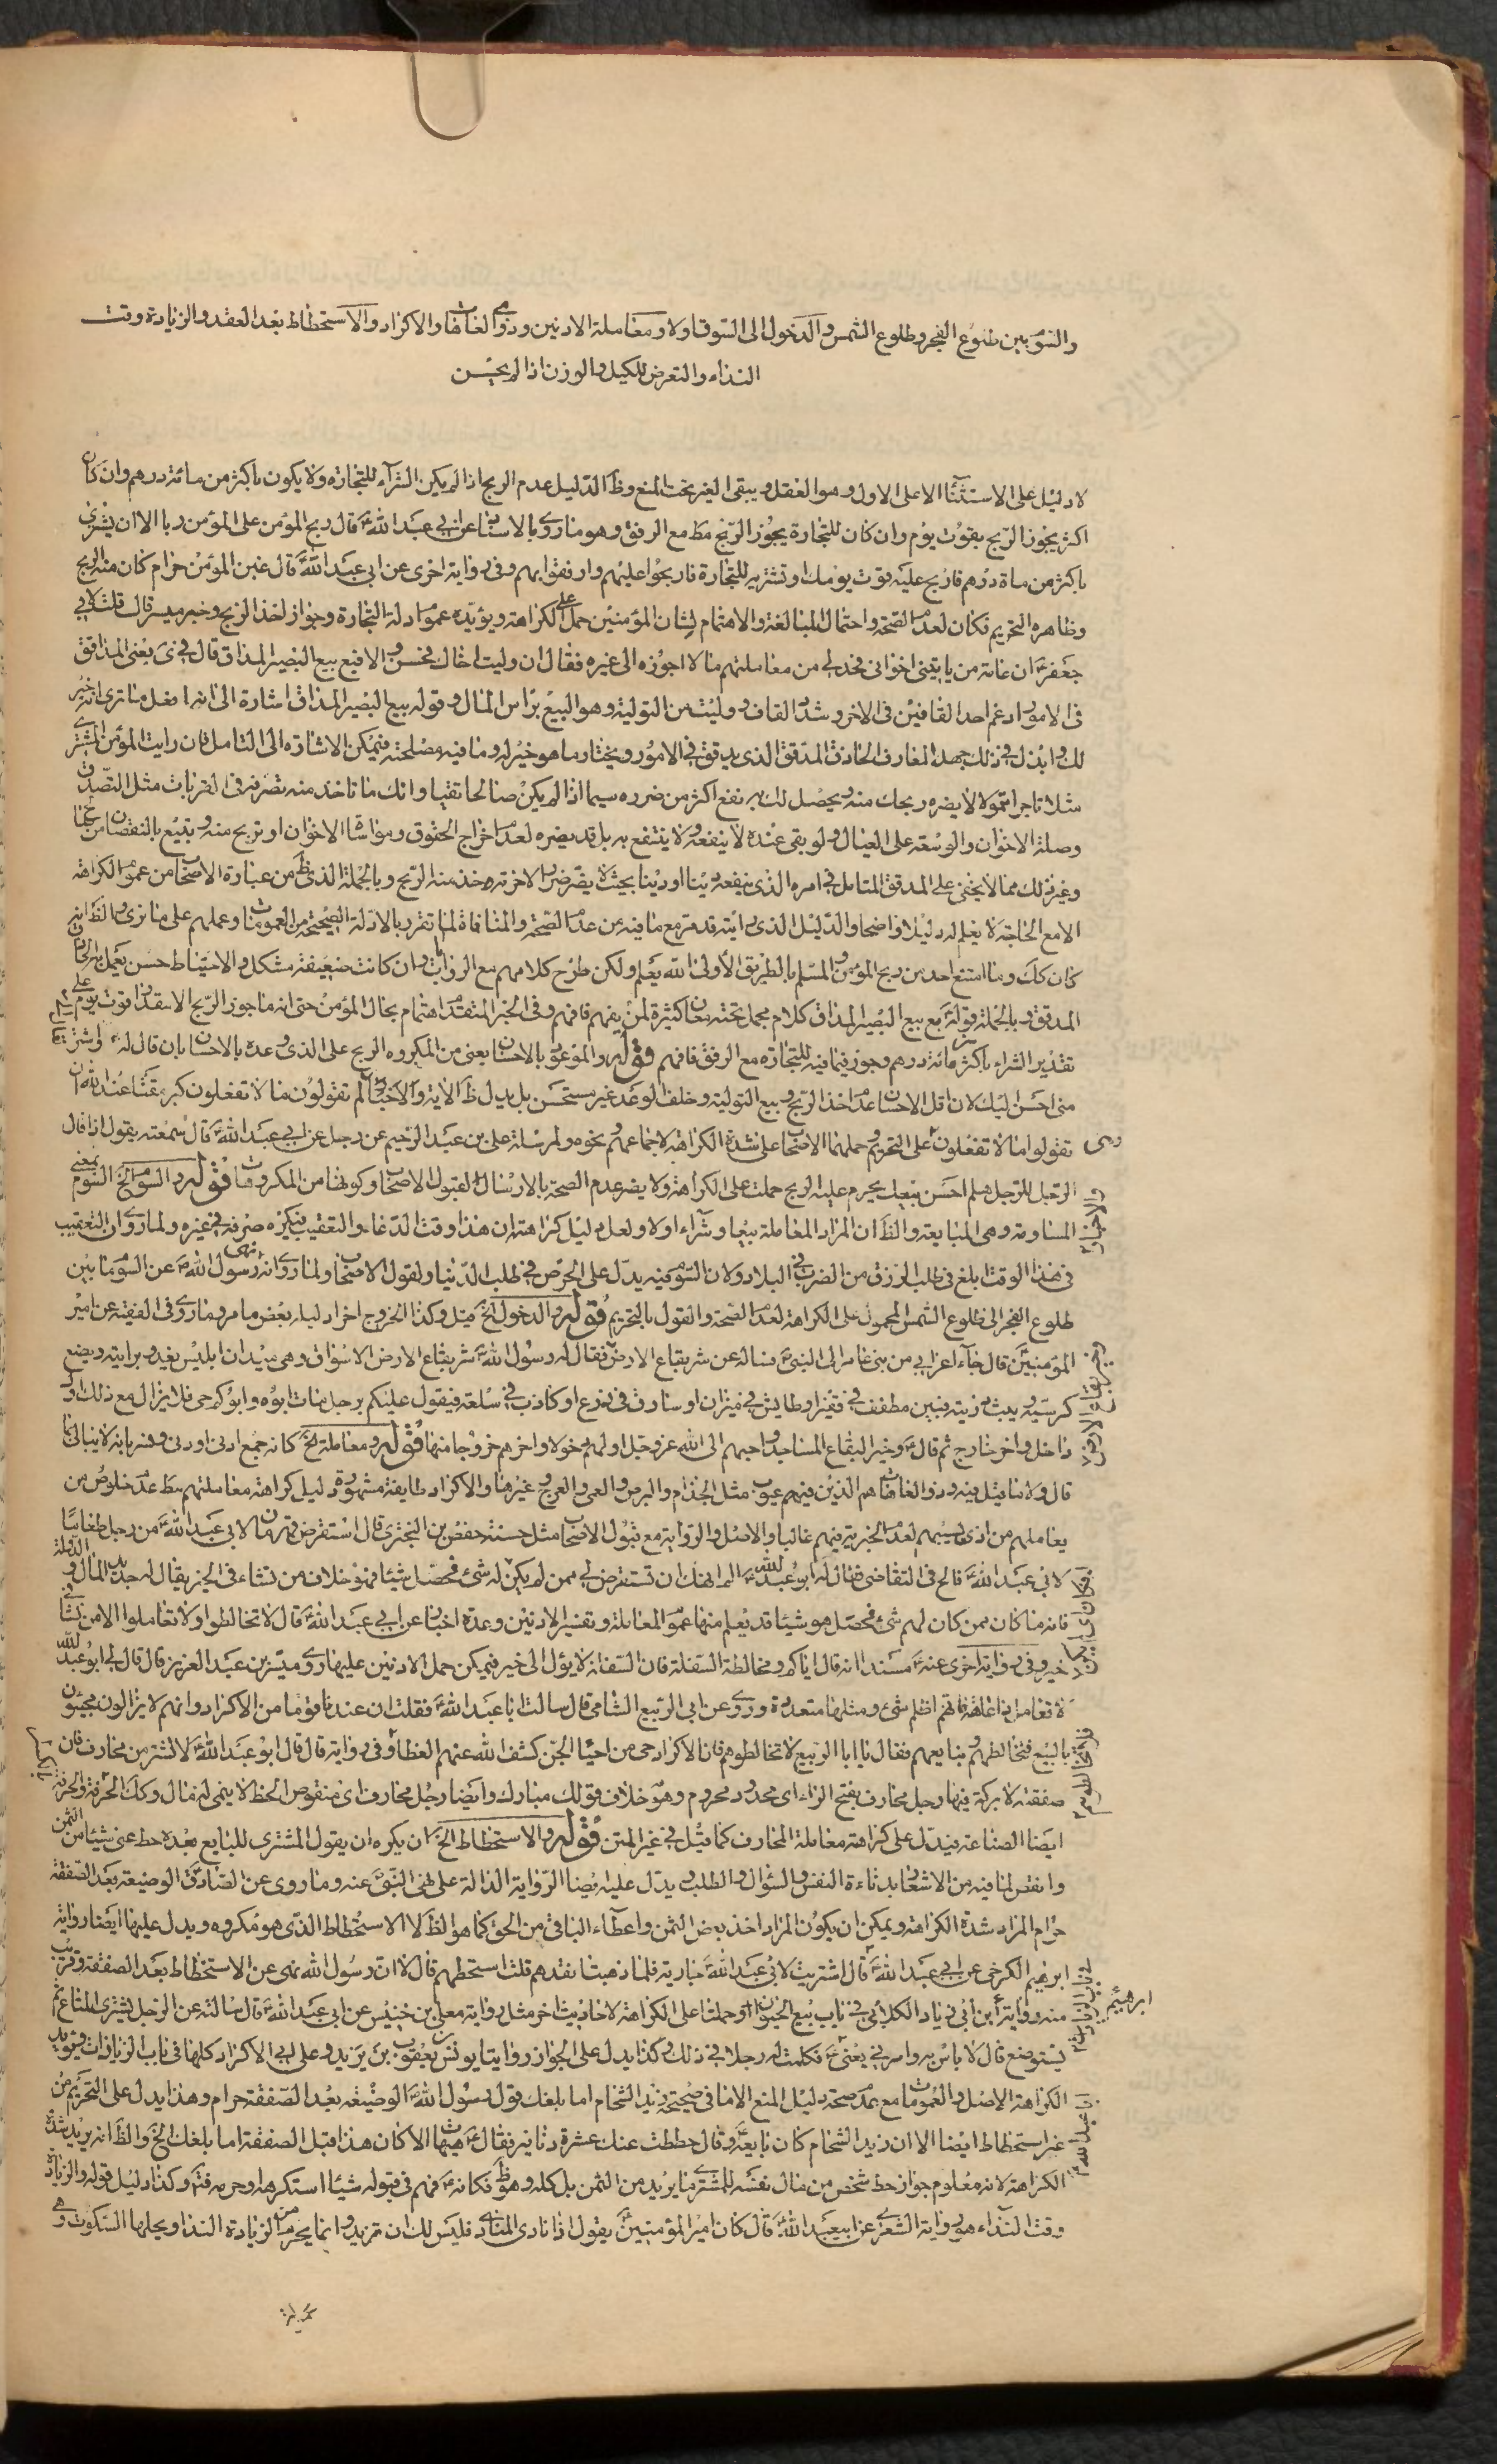 والسوم بين طلوع الفجر وطلوع الشمس والدخول الى السوق اولا ومعاملة الادنين وذوى العاهات والاكراد والاستحطاط بعد العقد والزيادة وقت
النداء والتعرض للكيل والوزن اذا لم يحسن
لا دليل على الاستثناء الا على الاول وهو العقل ويبقى الغير تحت المنع وظ الدليل عدم الربح اذا لم يكن الشراء للتجارة ولا يكون باكثر من مائة درهم وان كان
اكثر يجوز الربح بقوت يوم وان كان للتجارة يجوز الربح مط مع الرفق وهو ما روى بالاسناد عن ابى عبد الله ع قال ربح المؤمن على المؤمن ربا الا ان يشترى
باكثر من مأة درهم فاربح عليه قوت يومك او تشتريه للتجارة فاربحوا عليهم وارفقوا بهم وفى رواية اخرى عن ابى عبد الله ع قال غبن المؤمن حرام كان منه الربح
وظاهره التحريم فكان لعدم الصحة واحتمال المبالغة والاهتمام لشان المؤمنين حمل على الكراهة ويؤيده عموم ادلة التجارة وجواز اخذ الربح وخبر ميسر قال قلت لابى
جعفر ع ان عامة من ياتينى اخوانى فحد لى من معاملتهم ما لا اجوزه الى غيره فقال ان وليت اخاك فحسن والا فبع بيع البصير المداق قال فى ى يعنى المداقق
فى الامور ادغم احد القافين فى الاخر وشد القاف ووليت من التولية وهو البيع براس المال وقوله بيع البصير المداق اشارة الى انه افعل ما ترى انه خير
لك وابذل فى ذلك جهد العارف الحاذق المدقق الذى يدقق فى الامور ويختار ما هو خير له وما فيه مصلحته فيمكن الاشارة الى التامل فان رايت المؤمن المشترى
مثلا تاجرا متمولا لا يضره ربحك منه ويحصل لك به نفع اكثر من ضرره سيما اذا لم يكن صالحا تقيا وانك ما تاخذ منه تصرفه فى القربات مثل التصدق
وصلة الاخوان والوسعة على العيال ولو بقى عنده لا ينفعه ولا ينتفع به بل قد يضره لعدم اخراج الحقوق ومواساة الاخوان او تربح منه وتبيع بالنقصان من محتاج
وغير ذلك مما لا يخفى على المدقق المتامل فى امره الذى ينفعه دينا او دنيا بحيث لا يضر ضررا لاخرته فخذ منه الربح وبالجملة الذى ظهر من عبارة الاصحاب من عموم الكراهة
الا مع الحاجة لا يعلم له دليلا واضحا والدليل الذى رايته قد مر مع ما فيه من عدم الصحة والمنافاة لما تقرر بالادلة الصحيحة من العمومات وعملهم على ما نرى والظ انه
كان كك وما امتنع احد من ربح المؤمن والمسلم بالطريق الأولى الله يعلم ولكن طرح كلامهم مع الروايات وان كانت ضعيفة مشكل والاحتياط حسن يعمل به الحاذق
المدقق وبالجملة قوله ع بع بيع البصير المداق كلام مجمل تحته معان كثيرة لمن يفهم فافهم وفى الخبر المتقدم اهتمام بحال المؤمن حتى انه ما جوز الربح الا بقدر قوت يوم على
تقدير الشراء باكثر من مائة درهم وجوز فيما فيه للتجارة مع الرفق فافهم قوله والموعود بالاحسان يعنى من المكروه الربح على الذى وعده بالاحسان بان قال له اشتر
منى احسن اليك لان اقل الاحسان عدم اخذ الربح وبيع التولية وخلف الوعد غير مستحسن بل يدل ظ الاية والاخبار لم تقولون ما لا تفعلون كبر مقتا عند الله ان
تقولوا ما لا تفعلون على التحريم وحملهما الاصحاب على شدة الكراهة لاجماعهم ونحوه ولمرسلة على بن عبد الرحيم عن رجل عن ابى عبد الله ع قال سمعته يقول اذا قال
الرجل للرجل هلم احسن بيعك يحرم عليه الربح حملت على الكراهة ولا يضر عدم الصحة بالارسال لقبول الاصحاب وكونها من المكروهات قوله والسوم الخ السوم بمعنى
المساومة وهى المبايعة والظ ان المراد المعاملة بيعا وشراء اولا ولعل دليل كراهته ان هذا وقت الدعاء والتعقيب فيكره صرفه فى غيره ولما روى ان التعقيب
فى هذا الوقت ابلغ فى طلب الرزق من الضرب فى البلاد ولان السوم فيه يدل على الحرص فى طلب الدنيا ولقول الاصحاب ولما روى انه نهى رسول الله ص عن السوم ما بين
طلوع الفجر الى طلوع الشمس المحمول على الكراهة لعدم الصحة والقول بالتحريم قوله والدخول الخ قيل وكذا الخروج اخرا دليله بعض ما مر وما روى فى الفقيه عن امير
المؤمنين ع قال جاء اعرابى من بنى عامر الى النبى ص فساله عن شر بقاع الارض فقال له رسول الله ص شر بقاع الارض الاسواق وهى ميدان ابليس يغدو برايته ويضع
كرسيه ويبث ذريته فبين مطفف فى قفيز او طايش فى ميزان او سارق فى ذرع او كاذب فى سلعته فيقول عليكم برجل مات ابوه وابوكم حى فلا يزال مع ذلك اول
داخل واخر خارج ثم قال ع وخير البقاع المساجد واحبهم الى الله عز وجل اولهم دخولا واخرهم خروجا منها قوله ومعاملة الخ كانه جمع ادنى او دنى وفسر بانه لا يبالى بما
قال ولا ما قيل فيه وذو العاهات هم الذين فيهم عيوب مثل الجذام والبرص والعمى والعرج وغيرها والاكراد طايفة مشهورة دليل كراهة معاملتهم مط عدم خلوص من
يعاملهم من اذى بسببهم لعدم الخيرية فيهم غالبا والاصل والرواية مع قبول الاصحاب مثل حسنة حفص بن البخترى قال استقرض قهرمان لابى عبد الله ع من رجل طعاما
لابى عبد الله ع فالح فى التقاضى فقال له ابو عبد الله ع الم انهك ان تستقرض لى ممن لم يكن له شئ فحصل شيئا فهو خلاف من نشاء فى الخير يقال له جديد المال والدولة
فانه ما كان ممن كان لهم شئ فحصل هو شيئا قد يعلم منها عموم المعاملة وتفسير الادنين وعدة اخبار عن ابى عبد الله ع قال لا تخالطوا ولا تعاملوا الا من نشأ فى
خير وفى رواية اخرى عنه ع مسندا انه قال اياكم ومخالطة السفلة فان السفلة لا يؤل الى خير فيمكن حمل الادنين عليها روى ميسر بن عبد العزيز قال قال لى ابو عبد الله
ع لا تعامل ذا عاهة فانهم اظلم شئ ومثلها متعددة وروى عن ابى الربيع الشامى قال سالت ابا عبد الله ع فقلت ان عندنا قوما من الاكراد وانهم لا يزالون يجيئون
بالبيع فنخالطهم ونبايعهم فقال يا ابا الربيع لا تخالطوهم فان الاكراد حى من احياء الجن كشف الله عنهم الغطاء وفى رواية قال قال ابو عبد الله ع لا تشتر من محارف فان
صفقته لا بركة فيها ورجل محارف بفتح الراء اى محدود محروم وهو خلاف قولك مبارك وايضا رجل محارف اى منقوص الحظ لا ينمى له مال وكك الحرفة والحرفة
ايضا الصناعة فيدل على كراهة معاملة المحارف كما قيل فى غير المتن قوله والاستحطاط الخ ان يكره ان يقول المشترى للبايع بعده حط عنى شيئا من الثمن
وانقص لما فيه من الاشعار بدناءة النفس والسؤال والطلب ويدل عليه ايضا الرواية الدالة على نهى النبى ص عنه وما روى عن الصادق ع الوضيعة بعد الصفقة
حرام المراد شدة الكراهة ويمكن ان يكون المراد اخذ بعض الثمن واعطاء الباقى من الحق كما هو الظ لا الاستحطاط الذى هو مكروه ويدل عليها ايضا رواية
ابرهيم الكرخى عن ابى عبد الله ع قال اشتريت لابى عبد الله ع جارية فلما ذهبت انقدهم قلت استحطهم قال لا ان رسول الله نهى عن الاستحطاط بعد الصفقة وقريب
منه رواية ابن ابى زياد الكلابى فى باب بيع الحيوان وحملتا على الكراهة لاحاديث اخر مثل رواية معلى بن خنيس عن ابى عبد الله ع قال سالته عن الرجل يشترى المتاع ثم
يستوضع قال لا باس به وامرنى يعنى ع فكلمت له رجلا فى ذلك وكذا يدل على الجواز روايتا يونس بن يعقوب بن يزيد وعلى ابى الاكراد كلها فى باب الزيادات وتؤيد
الكراهة الاصل والعمومات مع عدم صحة دليل المنع الا ما فى صحيحة زيد الشحام اما بلغك قول رسول الله ص الوضيعة بعد الصفقة حرام وهذا يدل على التحريم من
غير استحطاط ايضا الا ان زيد الشحام كان بايعه ع وقال حططت عنك عشرة دنانير فقال ع هيهات الا كان هذا قبل الصفقة اما بلغك الخ والظ انه يريد شدة
الكراهة لانه معلوم جواز حط شخص من مال نفسه للمشترى ما يريد من الثمن بل كله وهو ظ فكانه ع فهم فى قبوله شيئا استكرهه وحرمه فتم وكذا دليل قوله والزيادة
وقت النداء هو رواية الشعيرى عن ابيعبد الله ع قال كان امير المؤمنين ع يقول اذا نادى المنادى فليس لك ان تزيد وانما يحرم من الزيادة النداء ويحلها السكوت وهى